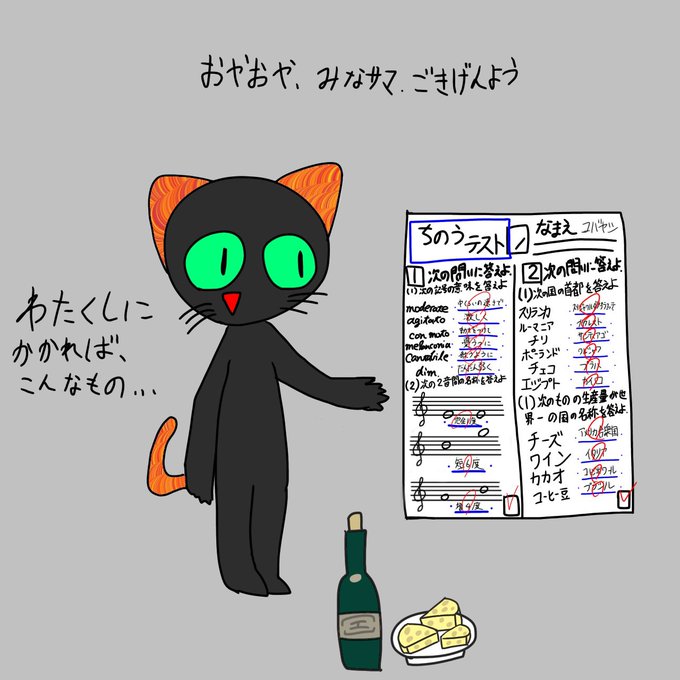 おやおや、みなサマ、ごきげんよう
わたくしに
かかれば、
こんなもの...
ちのう
テスト
なまえ コバヤシ
1 次の問いに答えよ
(1)次の記号の意味を答えよ
moderate
agitato 激しく
con moto
melanconia
Cantabile 歌うように
dim だんだん弱く
(2)次の2音間の名称を答えよ
完全1度
短6度
増4度
2 次の問いに答えよ.
(1)次の国の首都を答えよ
スリランカ
ルーマニア ブカレスト
チリ サンティアゴ
ポーランド ワルシャワ
チェコ プラハ
エジプト カイロ
(1)次のものの生産量が世
界一の国の名称を答えよ.
チーズ アメリカ合衆国
ワイン イタリア
カカオ コートジボワール
コーヒー豆 ブラジル
エ